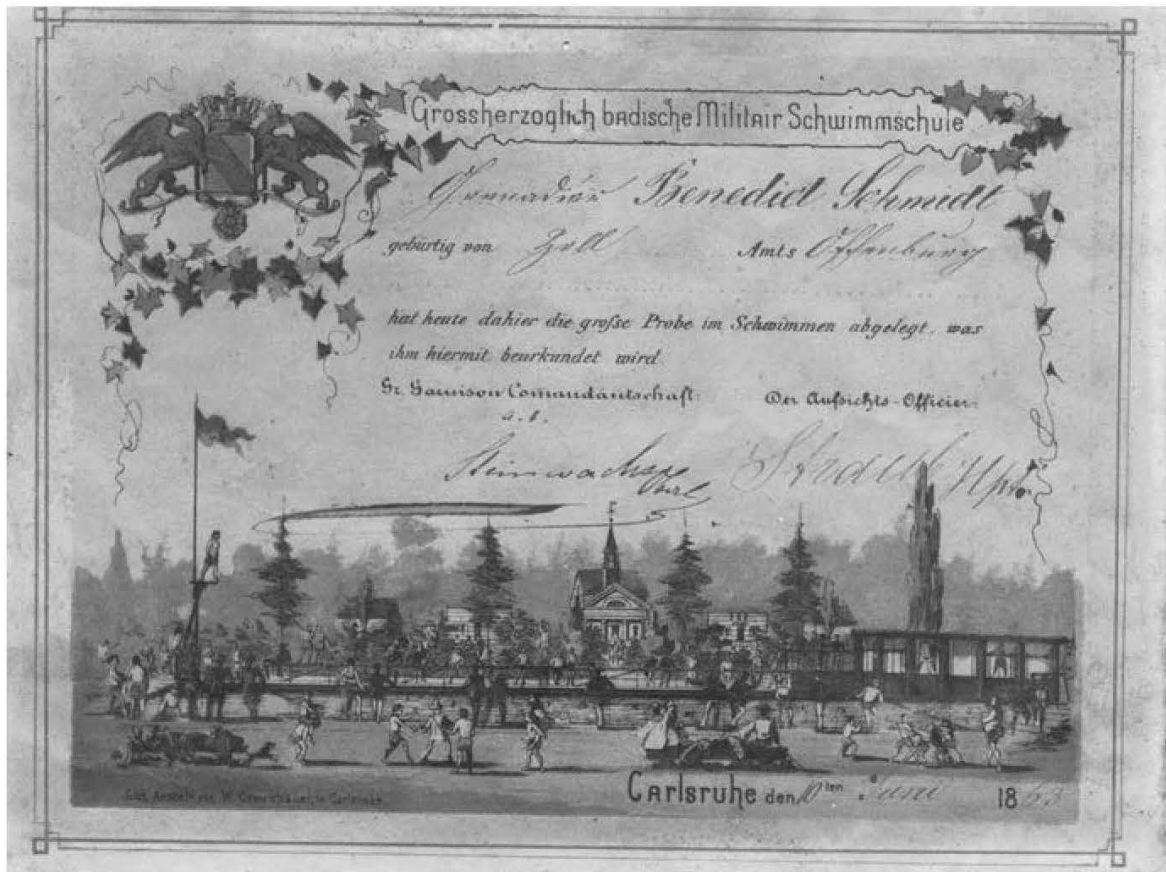 Grossherzoglich badische Militair Schwimmschule
Grenadier Benedict Schmidt
gebürtig von Zell Amts Offenburg
hat heute dahier die große Probe im Schwimmen abgelegt, was
ihm hiermit beurkundet wird.
Gr. Garnison Comandantschaft: Der Aufsichts-Officier:
Steinwachs
Carlsruhe den 10ten Juni 1863